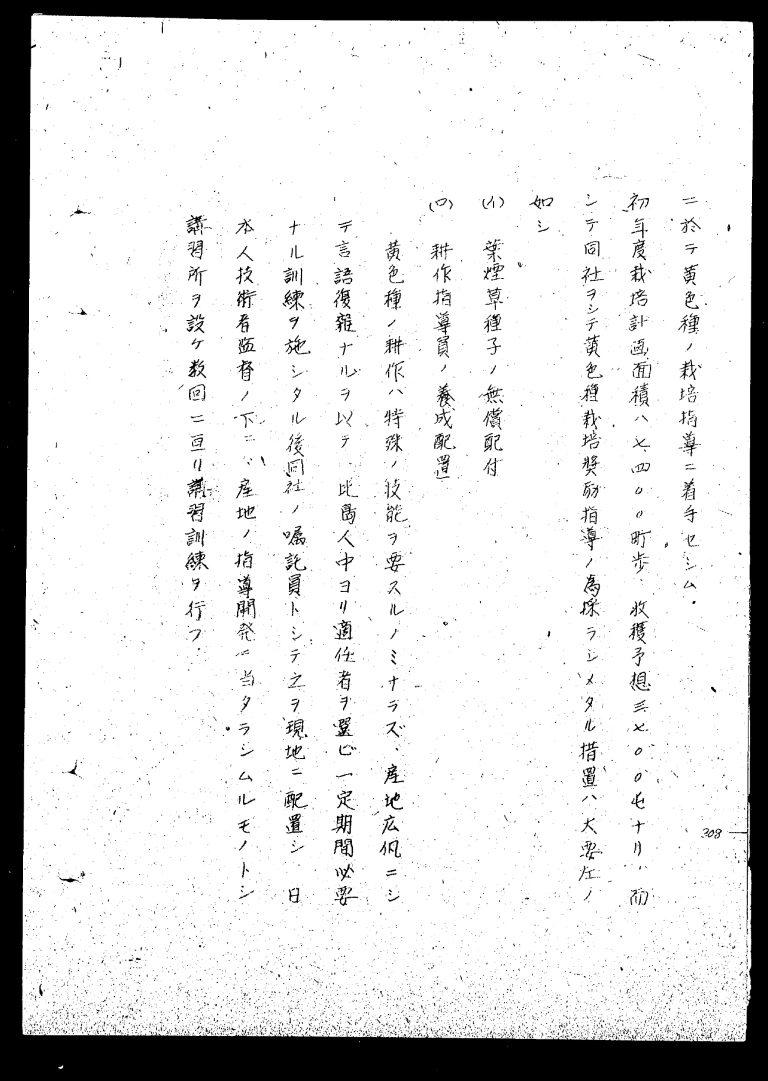 ニ於テ黄色種ノ栽培指導ニ着手セシム。
初年度栽培計画面積ハ七、四〇〇町歩、收穫予想三七〇〇屯ナリ、而
シテ同社ヲシテ黄色種栽培奨励指導ノ為採ラシメタル措置ハ大要左ノ
如シ
(イ) 葉煙草種子ノ無償配付
(ロ) 耕作指導員ノ養成配置
黄色種ノ耕作ハ特殊ノ技能ヲ要スルノミナラズ、産地広汎ニシ
テ言語復雑ナルヲ以テ、比島人中ヨリ適任者ヲ選ビ一定期間必要
ナル訓練ヲ施シタル後同社ノ嘱託員トシテ之ヲ現地ニ配置シ 日
本人技術者監督ノ下ニ、産地ノ指導開発ニ当タラシムルモノトシ
講習所ヲ設ケ数回ニ亘リ講習訓練ヲ行フ
308